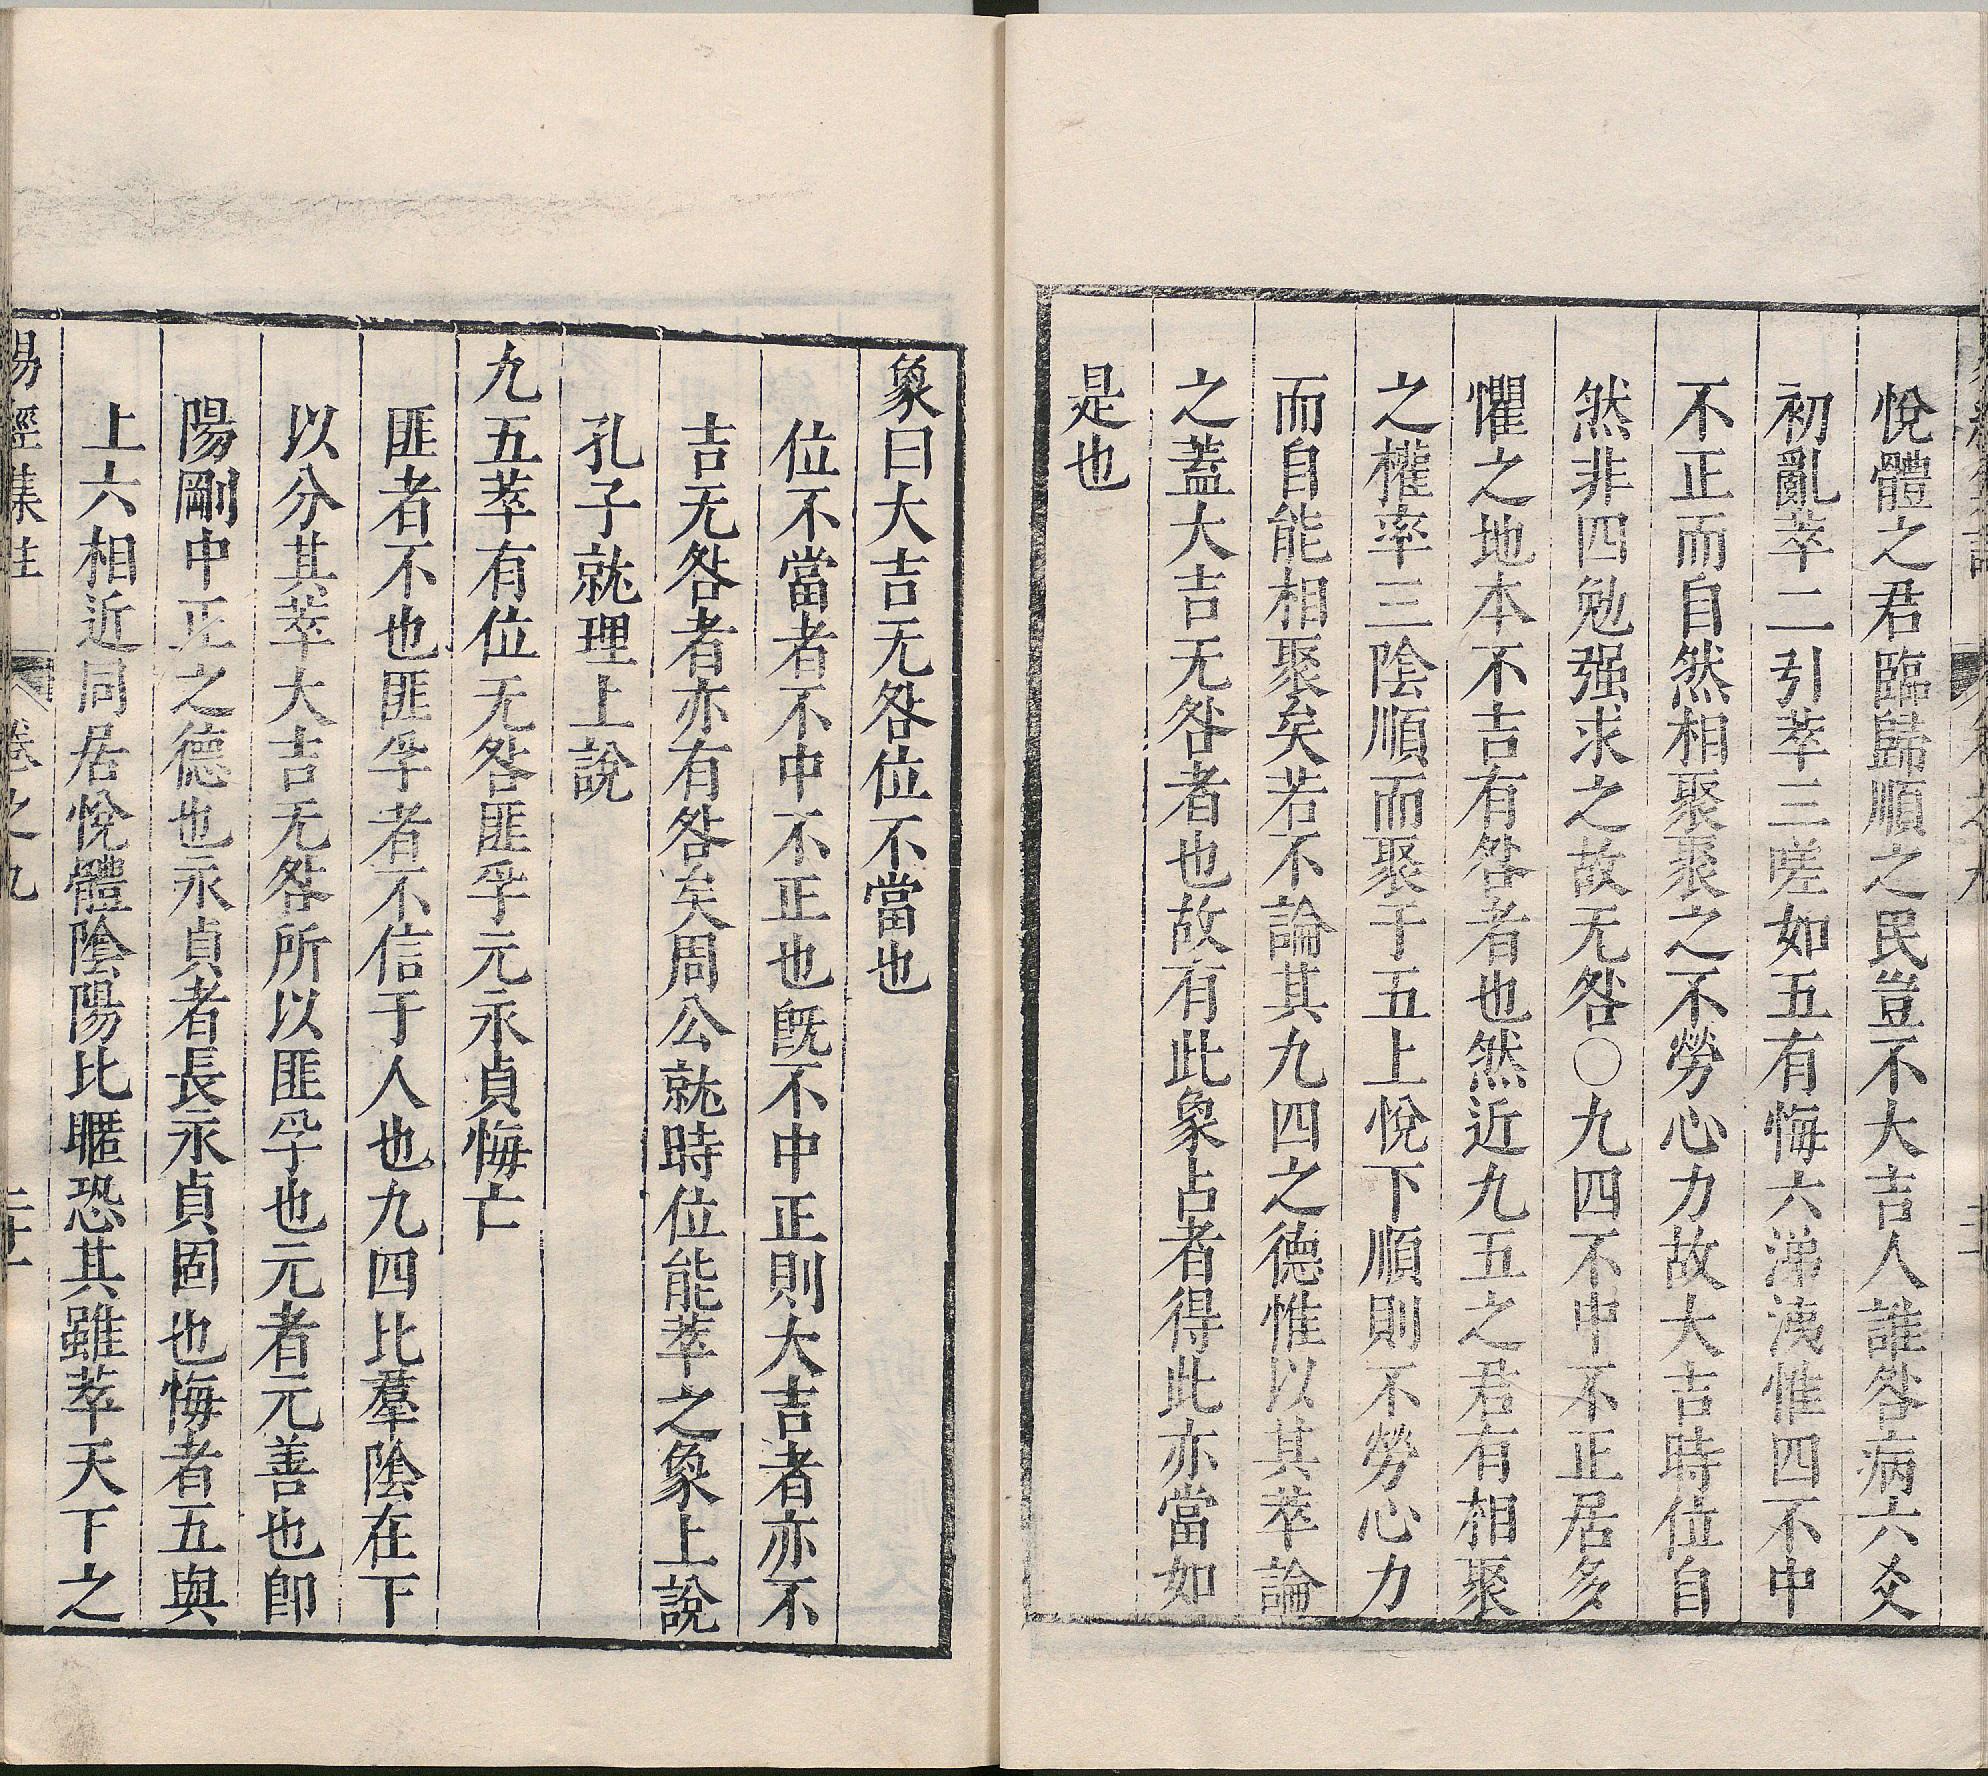 悅體之君臨歸順之民豈不大吉人誰咎病六爻
初亂萃二引萃三嗟如五有悔六涕洟惟四不中
不正而自然相聚聚之不勞心力故大吉時位自
然非四勉强求之故无咎○九四不中不正居多
懼之地本不吉有咎者也然近九五之君有相聚
之權率三陰順而聚于五上悅下順則不勞心力
而自能相聚矣若不論其九四之德惟以其萃論
之蓋大吉无咎者也故有此象占者得此亦當如
是也
象曰大吉无咎位不當也
位不當者不中不正也旣不中正則大吉者亦不
吉无咎者亦有咎矣周公就時位能萃之象上說
孔子就理上說
九五萃有位无咎匪孚元永貞悔亡
匪者不也匪孚者不信于人也九四比羣陰在下
以分其萃大吉无咎所以匪孚也元者元善也卽
陽剛中正之德也永貞者長永貞固也悔者五與
上六相近同居悅體陰陽比暱恐其雖萃天下之
易經集註 卷之九